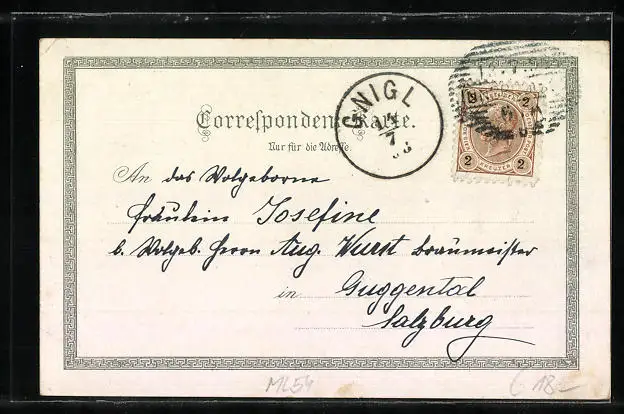 Correspondenz-Karte.
Nur für die Adresse.
GNIGL
14
7
2 2
2 KREUZER 2
An das Wolgeborne
Fräulein Josefine
b. Wolgeb. Herrn Aug. Wurst Braumeister
in Guggental
Salzburg
ML54
18-